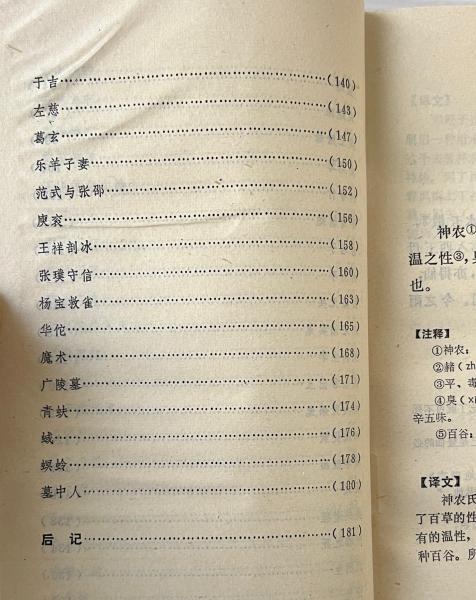 于吉……………………(140)
左慈……………………(143)
葛玄……………………(147)
乐羊子妻……………………(150)
范式与张邵……………………(152)
庾衮……………………(156)
王祥剖冰……………………(158)
张璞守信……………………(160)
杨宝救雀……………………(163)
华佗……………………(165)
魔术……………………(168)
广陵墓……………………(171)
青蚨……………………(174)
蜮……………………(176)
螟蛉……………………(178)
墓中人……………………(180)
后记……………………(181)
神农①
温之性③,
也。
【注释】
①神农:
②赭(zh
③平、毒
④臭(xi
辛五味。
⑤百谷:
【译文】
神农氏
了百草的性
有的温性,
种百谷。所